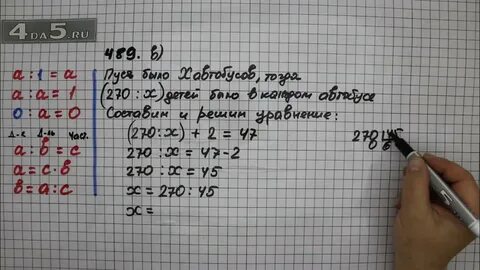 4да5.ru
489. в)
Пусть было X автобусов, тогда
(270 : x) детей было в каждом автобусе
Составим и решим уравнение:
(270 : x) + 2 = 47
270 : x = 47 - 2
270 : x = 45
x = 270 : 45
x =
a : 1 = a
a : a = 1
0 : a = 0
Д-е Д-ль Част.
a : в = c
a = c · в
в = a : c
270 | 45
0 6